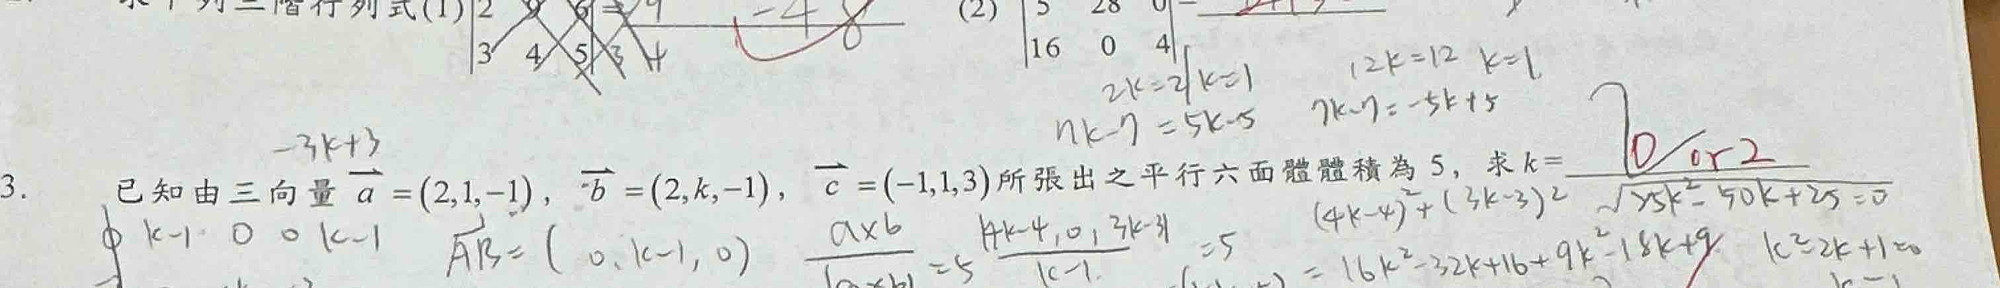 求下列三階行列式(1) 2 9 6 = 9 -48 (2) 5 28 0 =
3 4 5 3 4 16 0 4
2k=2 k=1 12k=12 k=1
7k-7=5k-5 7k-7=-5k+5
-3k+3
3. 已知由三向量 a=(2,1,-1), b=(2,k,-1), c=(-1,1,3)所張出之平行六面體體積為5, 求k= 0 or 2
k-1 0 0 k-1 AB=(0,k-1,0) a×b/|a×b|=5 (4k-4,0,3k-3)/k-1=5 (4k-4)²+(3k-3)² √25k²-50k+25=0
=16k²-32k+16+9k²-18k+9 k²-2k+1=0